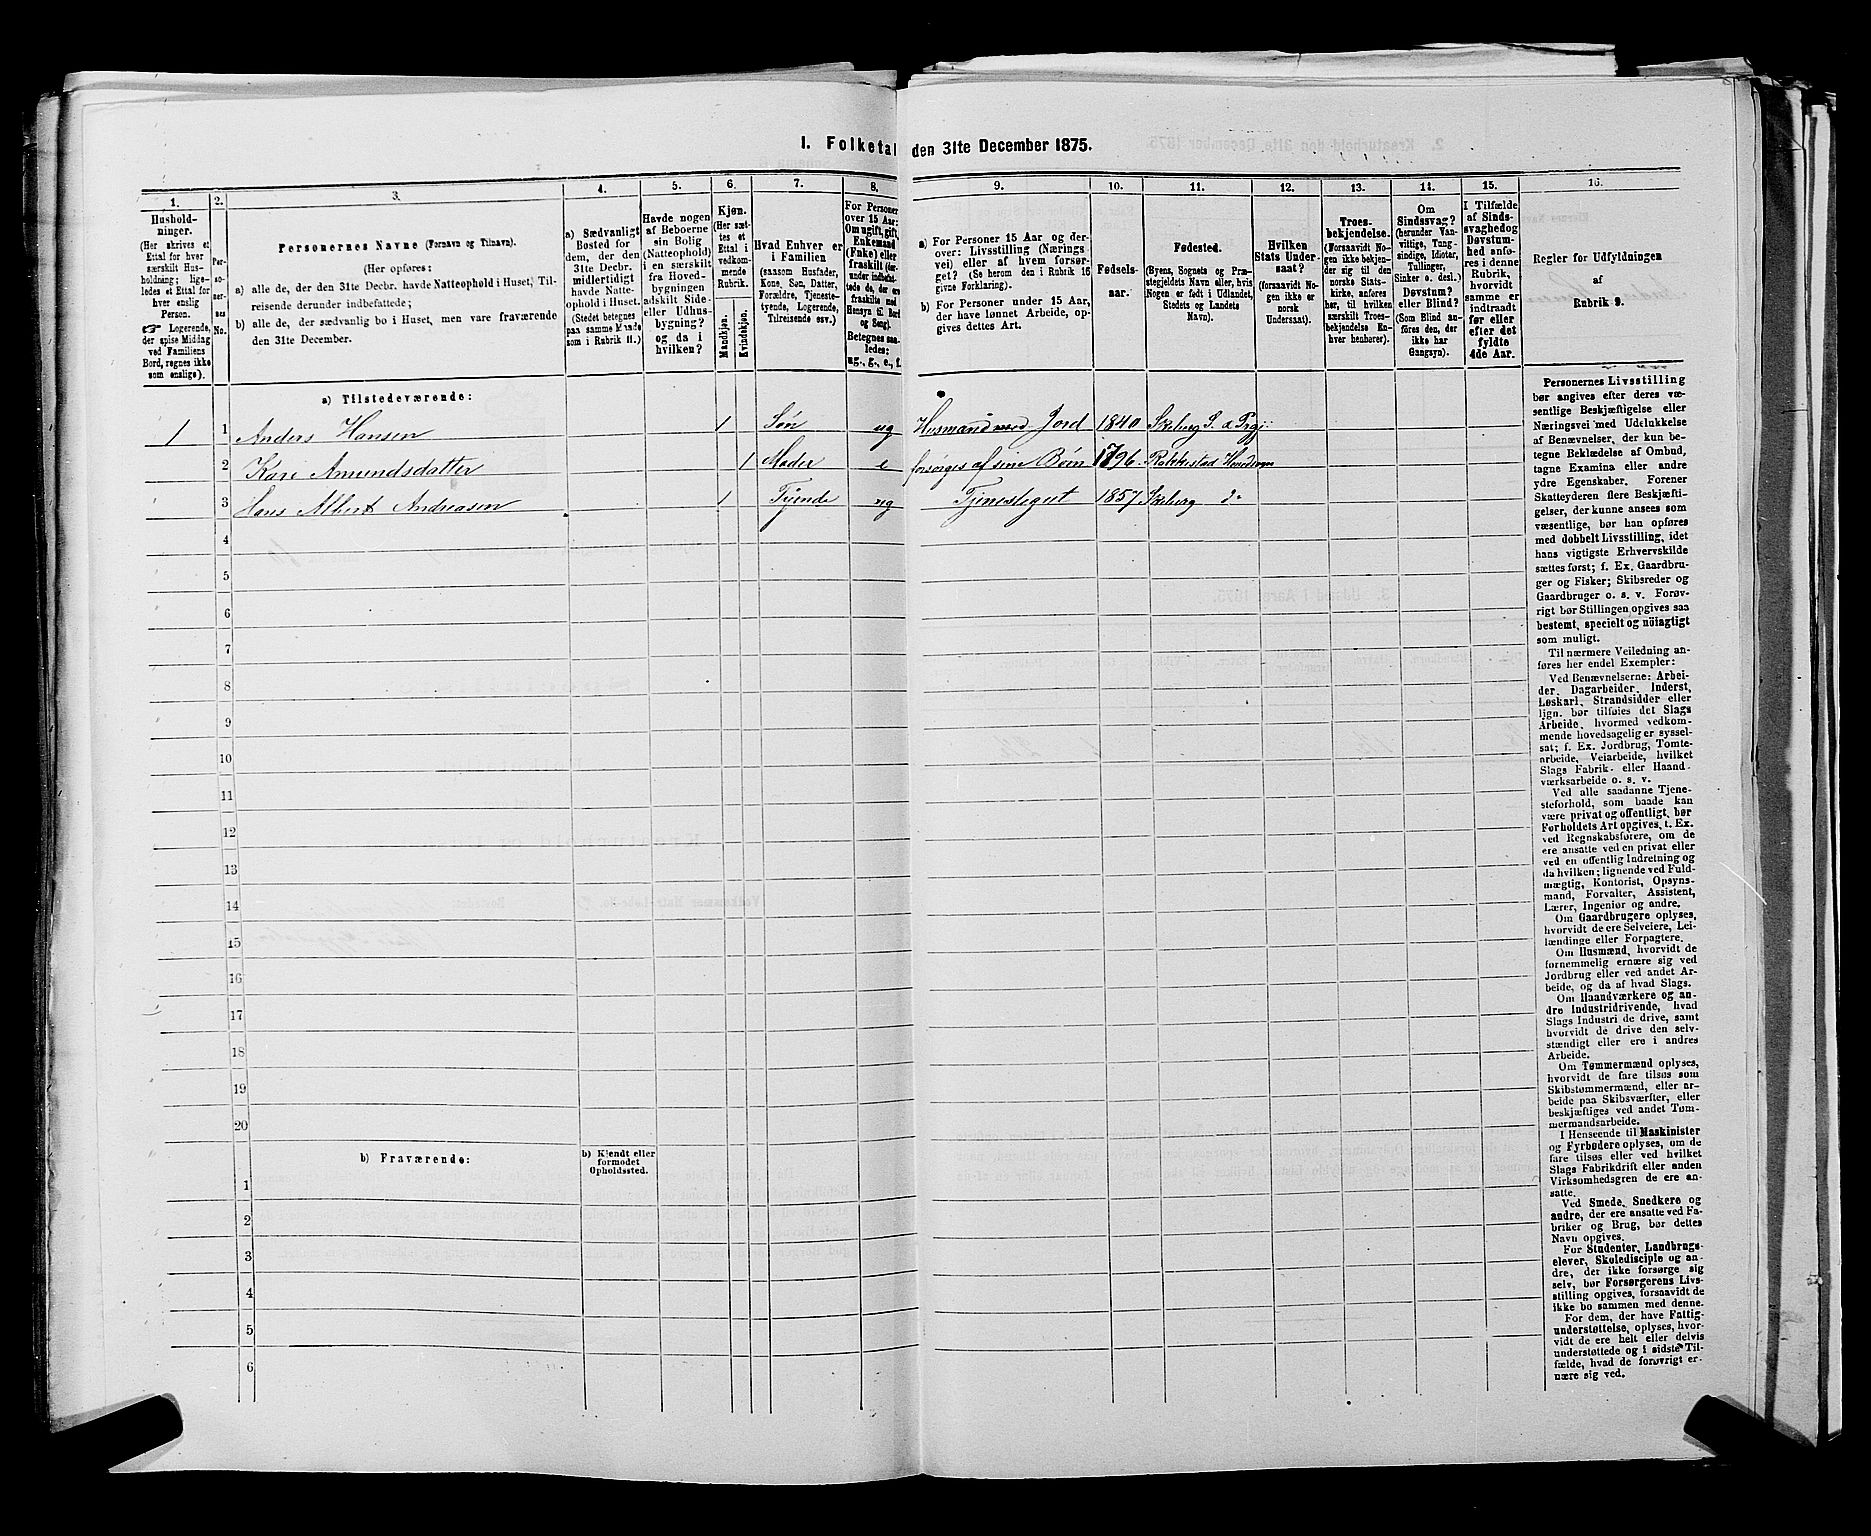 I. Folketal den 31te December 1875.
1.
Hushold-
ninger.
(Her skrives et
Ettal for hver
særskilt Hus-
holdning; lige-
ledes et Ettal for
hver enslig
Person.
☞ Logerende,
der spise Middag
ved Familiens
Bord, regnes ikke
som enslige).
2.
Per-
so-
ner-
nes
No.
3.
Personernes Navne (Fornavn og Tilnavn).
(Her opføres:
a) alle de, der den 31te Decbr. havde Natteophold i Huset, Til-
reisende derunder indbefattede;
b) alle de, der sædvanlig bo i Huset, men vare fraværende
den 31te December.
4.
a) Sædvanligt
Bosted for
dem, der den
31te Decbr.
midlertidigt
havde Natte-
ophold i Huset.
(Stedet betegnes
paa samme Maade
som i Rubrik 11.)
5.
Havde nogen
af Beboerne
sin Bolig
(Natteophold)
i en særskilt
fra Hoved-
bygningen
adskilt Side-
eller Udhus-
bygning?
og da i
hvilken?
6.
Kjøn.
(Her sæt-
tes et
Ettal i
vedkom-
mende
Rubrik.
Mandkjøn.
Kvindekjøn.
7.
Hvad Enhver er
i Familien
(saasom Husfader,
Kone, Søn, Datter,
Forældre, Tjeneste-
tyende, Logerende,
Tilreisende osv.)
8.
For Personer
over 15 Aar:
Om ugift, gift,
Enkemand
(Enke) eller
fraskilt (her-
under indbefat-
tede de, der ere
fraskilte med
Hensyn til Bord
og Seng).
Betegnes saa-
ledes:
ug., g., e., f.
9.
a) For Personer 15 Aar og der-
over: Livsstilling (Nærings-
vei) eller af hvem forsør-
get? (Se herom den i Rubrik 16
givne Forklaring).
b) For Personer under 15 Aar,
der have lønnet Arbeide, op-
gives dettes Art.
10.
Fødsels-
aar.
11.
Fødested.
(Byens, Sognets og Præ-
stegjeldets Navn eller, hvis
Nogen er født i Udlandet,
Stedets og Landets
Navn).
12.
Hvilken
Stats Under-
saat?
(forsaavidt No-
gen ikke er
norsk
Undersaat).
13.
Troes-
bekjendelse.
(Forsaavidt No-
gen ikke bekjen-
der sig til den
norske Stats-
kirke, anføres
her, til hvilken
særskilt Troes-
bekjendelse En-
hver henhører).
14.
Om
Sindssvag?
(herunder Van-
vittige, Tung-
sindige, Idioter,
Tullinger,
Sinker o. desl.)
Døvstum?
eller Blind?
(Som Blind an-
føres den, der
ikke har
Gangsyn).
15.
I Tilfælde
af Sinds-
svaghed og
Døvstum-
hed anfø-
res i denne
Rubrik,
hvorvidt
samme er
indtraadt
før eller
efter det
fyldte
4de Aar.
16.
Regler for Udfyldningen
af
Rubrik 9.
a) Tilstedeværende:
1 1 Anders Hansen 1 Søn ug Husmand med Jord 1840 Skiberg S. & Prgj.
2 Kari Amundsdatter 1 Moder e forsørges af sine Børn 1796 Rakkestad
3 Hans Albert Andreasen 1 Tyende ug Tjenestegut 1857 Skiberg do
4
5
6
7
8
9
10
11
12
13
14
15
16
17
18
19
20
b) Fraværende:
b) Kjendt eller
formodet
Opholdssted.
1
2
3
4
5
6
Personernes Livsstilling
bør angives efter deres væ-
sentlige Beskjæftigelse eller
Næringsvei med Udelukkelse
af Benævnelser, der kun be-
tegne Beklædelse af Ombud,
tagne Examina eller andre
ydre Egenskaber. Forener
Skatteyderen flere Beskjæfti-
gelser, der kunne ansees som
væsentlige, bør han opføres
med dobbelt Livsstilling, idet
hans vigtigste Erhvervskilde
sættes først; f. Ex. Gaardbru-
ger og Fisker; Skibsreder og
Gaardbruger o. s. v. Forøv-
rigt bør Stillingen opgives saa
bestemt, specielt og nøiagtigt
som muligt.
Til nærmere Veiledning an-
føres her endel Exempler:
Ved Benævnelserne: Arbei-
der, Dagarbeider, Inderst,
Løskarl, Strandsidder eller
lign. bør tilføies det Slags
Arbeide, hvormed vedkom-
mende hovedsagelig er syssel-
sat; f. Ex. Jordbrug, Tomte-
arbeide, Veiarbeide, hvilket
Slags Fabrik- eller Haand-
værksarbeide o. s. v.
Ved alle saadanne Tjene-
steforhold, som baade kan
være privat og offentligt, bør
Forholdets Art opgives, t. Ex.
ved Regnskabsførere, om de
ere ansatte ved en privat eller
ved en offentlig Indretning og
da hvilken; lignende ved Fuld-
mægtig, Kontorist, Opsyns-
mand, Forvalter, Assistent,
Lærer, Ingeniør og andre.
Om Gaardbrugere oplyses,
hvorvidt de ere Selveiere, Lei-
lændinge eller Forpagtere.
Om Husmænd, hvorvidt de
fornemmelig ernære sig ved
Jordbrug eller ved andet Ar-
beide, og da af hvad Slags.
Om Haandværkere og an-
dre Industridrivende, hvad
Slags Industri de drive, samt
hvorvidt de drive den selv-
stændigt eller ere i andres
Arbeide.
Om Tømmermænd oplyses,
hvorvidt de fare tilsøs som
Skibstømmermænd, eller ar-
beide paa Skibsværfter, eller
beskjæftiges ved andet Tøm-
mermandsarbeide.
I Henseende til Maskinister
og Fyrbødere oplyses, om de
fare tilsøs eller ved hvilket
Slags Fabrikdrift eller anden
Virksomhedsgren de ere an-
satte.
Ved Smede, Snedkere og
andre, der ere ansatte ved Fa-
briker og Brug, bør dettes
Navn opgives.
For Studenter, Landbrugs-
elever, Skoledisciple og an-
dre, der ikke forsørge sig
selv, bør Forsørgerens Livs-
stilling opgives, forsaavidt de
ikke bo sammen med denne.
For dem, der have Fattig-
understøttelse, oplyses, hvor-
vidt de ere helt eller delvis
understøttede og i sidste Til-
fælde, hvad de forøvrigt er-
nære sig ved.